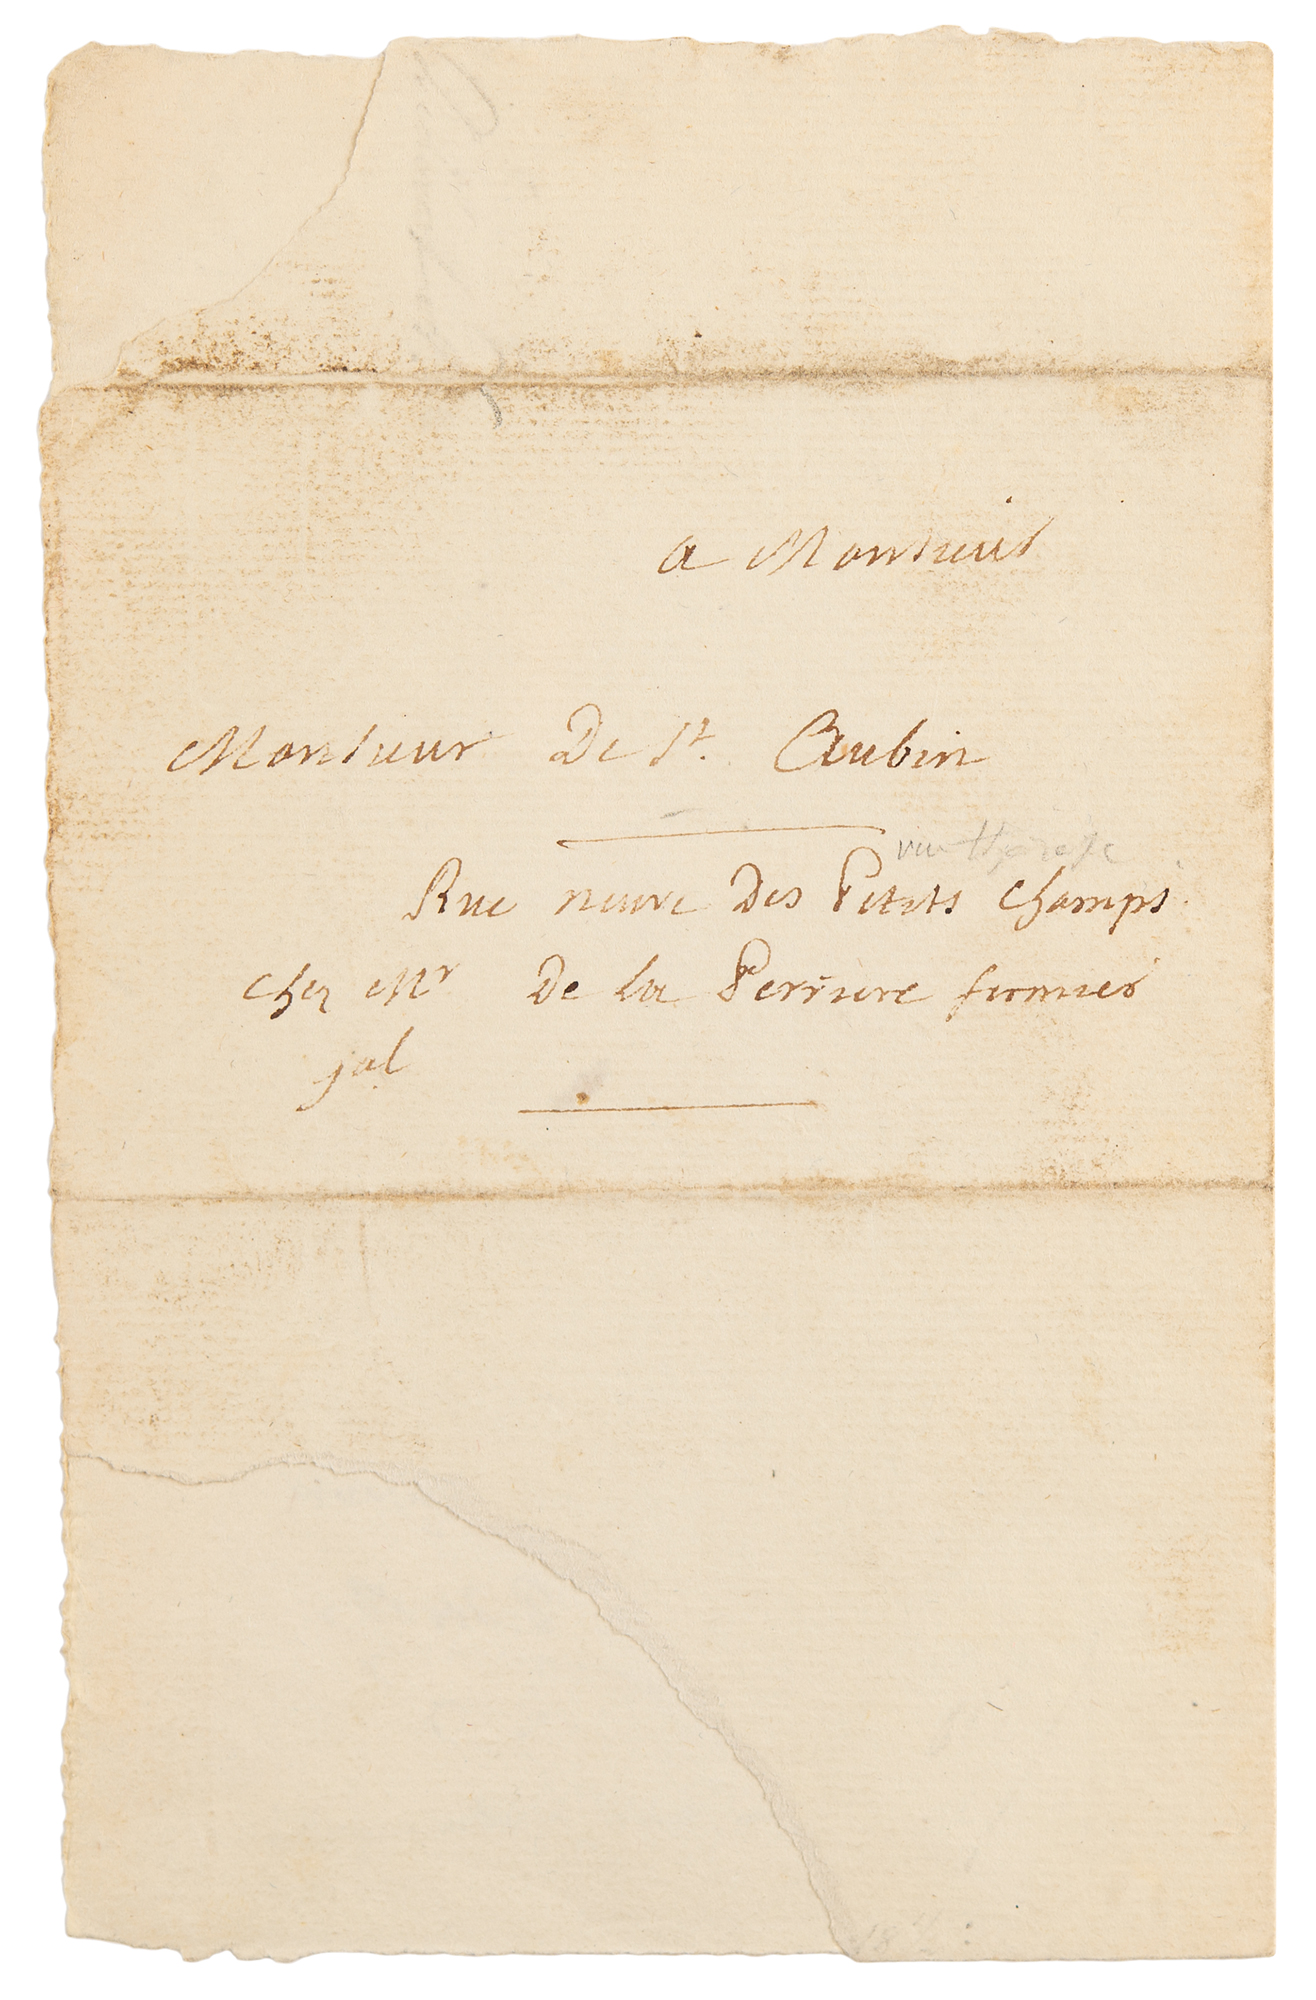 a Monsieur
Monsieur De St. Aubin
Rue neuve Des Petits Champs
Chez Mr De la Perriere fermier
gal